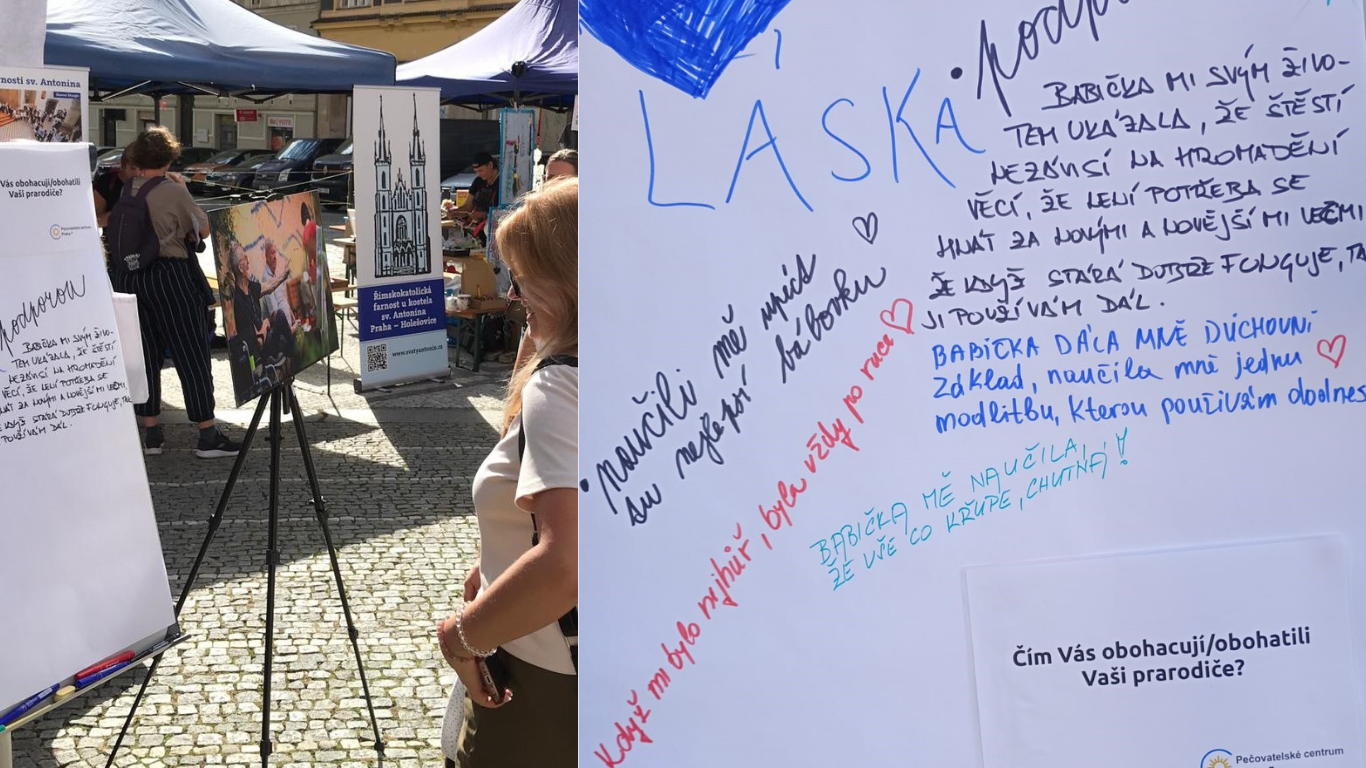 rnosti sv. Antonína
Vás obohacují/obohatili
Vaši prarodiče?
Pečovatelské centrum
podporou
BABIČKA MI SVÝM ŽIVO-
TEM UKÁZALA, ŽE ŠTĚSTÍ
NEZÁVISÍ NA HROMADĚNÍ
VĚCÍ, ŽE NENÍ POTŘEBA SE
HNÁT ZA NOVÝMI A NOVĚJŠÍMI VĚCMI
E KDYŽ STARÁ DOBŘE FUNGUJE, TAK
POUŽÍVÁM DÁL.
Římskokatolická
farnost u kostela
sv. Antonína
Praha – Holešovice
www.svatyantonin.cz
LÁSKA
podpo
BABIČKA MI SVÝM ŽIVO-
TEM UKÁZALA, ŽE ŠTĚSTÍ
NEZÁVISÍ NA HROMADĚNÍ
VĚCÍ, ŽE NENÍ POTŘEBA SE
HNÁT ZA NOVÝMI A NOVĚJŠÍMI VĚCMI
ŽE KDYŽ STARÁ DOBŘE FUNGUJE, TA
JI POUŽÍVÁM DÁL.
BABIČKA DALA MNĚ DUCHOVNÍ
základ, naučila mně jednu
modlitbu, kterou používám dodnes
• naučili mě upéct
su nejlepší bábovku
Když mi bylo nejhůř, byla vždy po ruce
BABIČKA MĚ NAUČILA,
ŽE VŠE CO KŘUPE, CHUTNÁ!
Čím Vás obohacují/obohatili
Vaši prarodiče?
Pečovatelské centrum